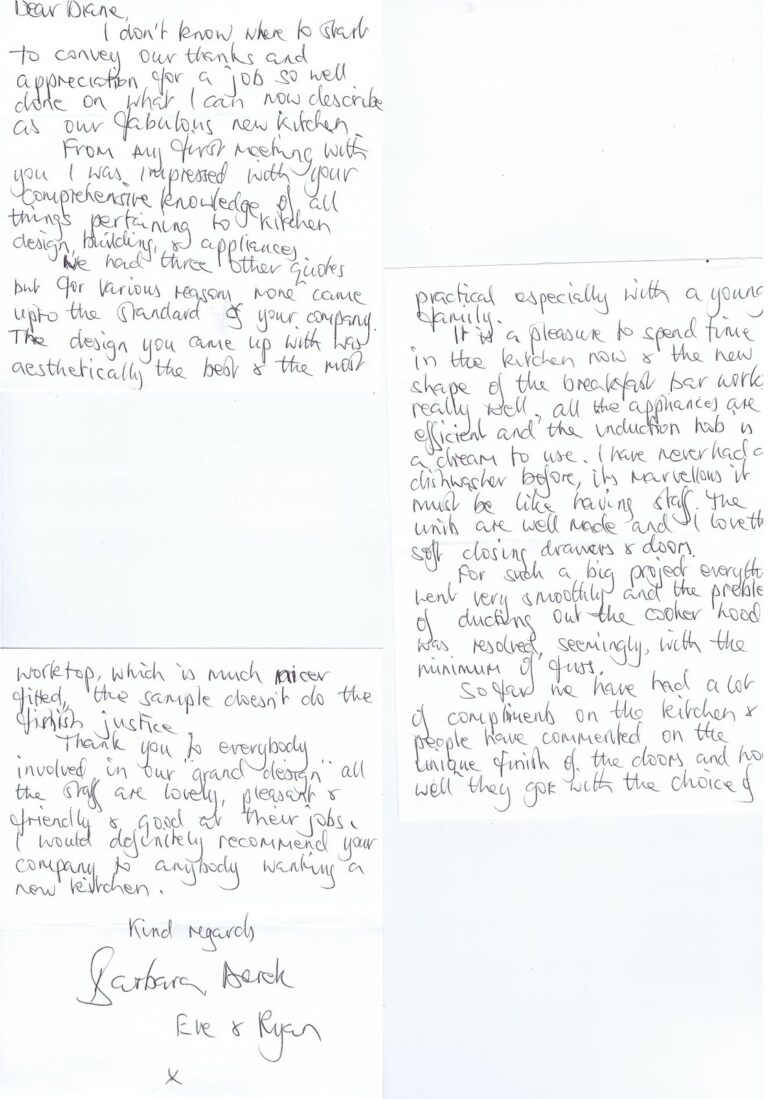 Dear Diane,
I don't know where to start
to convey our thanks and
appreciation for a job so well
done on what I can now describe
as our fabulous new kitchen.
From my first meeting with
you I was impressed with your
comprehensive knowledge of all
things pertaining to kitchen
design, building, & appliances
We had three other quotes
but for various reasons none came
upto the standard of your company.
The design you came up with was
aesthetically the best & the most
practical especially with a young
family.
It is a pleasure to spend time
in the kitchen now & the new
shape of the breakfast bar work
really well, all the appliances are
efficient and the induction hob is
a dream to use. I have never had a
dishwasher before, its marvellous it
must be like having staff. The
units are well made and I love th
soft closing drawers & doors.
For such a big project everyth
went very smoothly and the proble
of ducting out the cooker hood
was resolved, seemingly, with the
minimum of fuss.
So far we have had a lot
of compliments on the kitchen &
people have commented on the
unique finish of the doors and ho
well they go with the choice of
worktop, which is much nicer
fitted, the sample doesn't do the
finish justice
Thank you to everybody
involved in our "grand design" all
the staff are lovely, pleasant &
friendly & good at their jobs.
I would definitely recommend your
company to anybody wanting a
new kitchen.
Kind regards
Barbara, Derek
Eve & Ryan
x